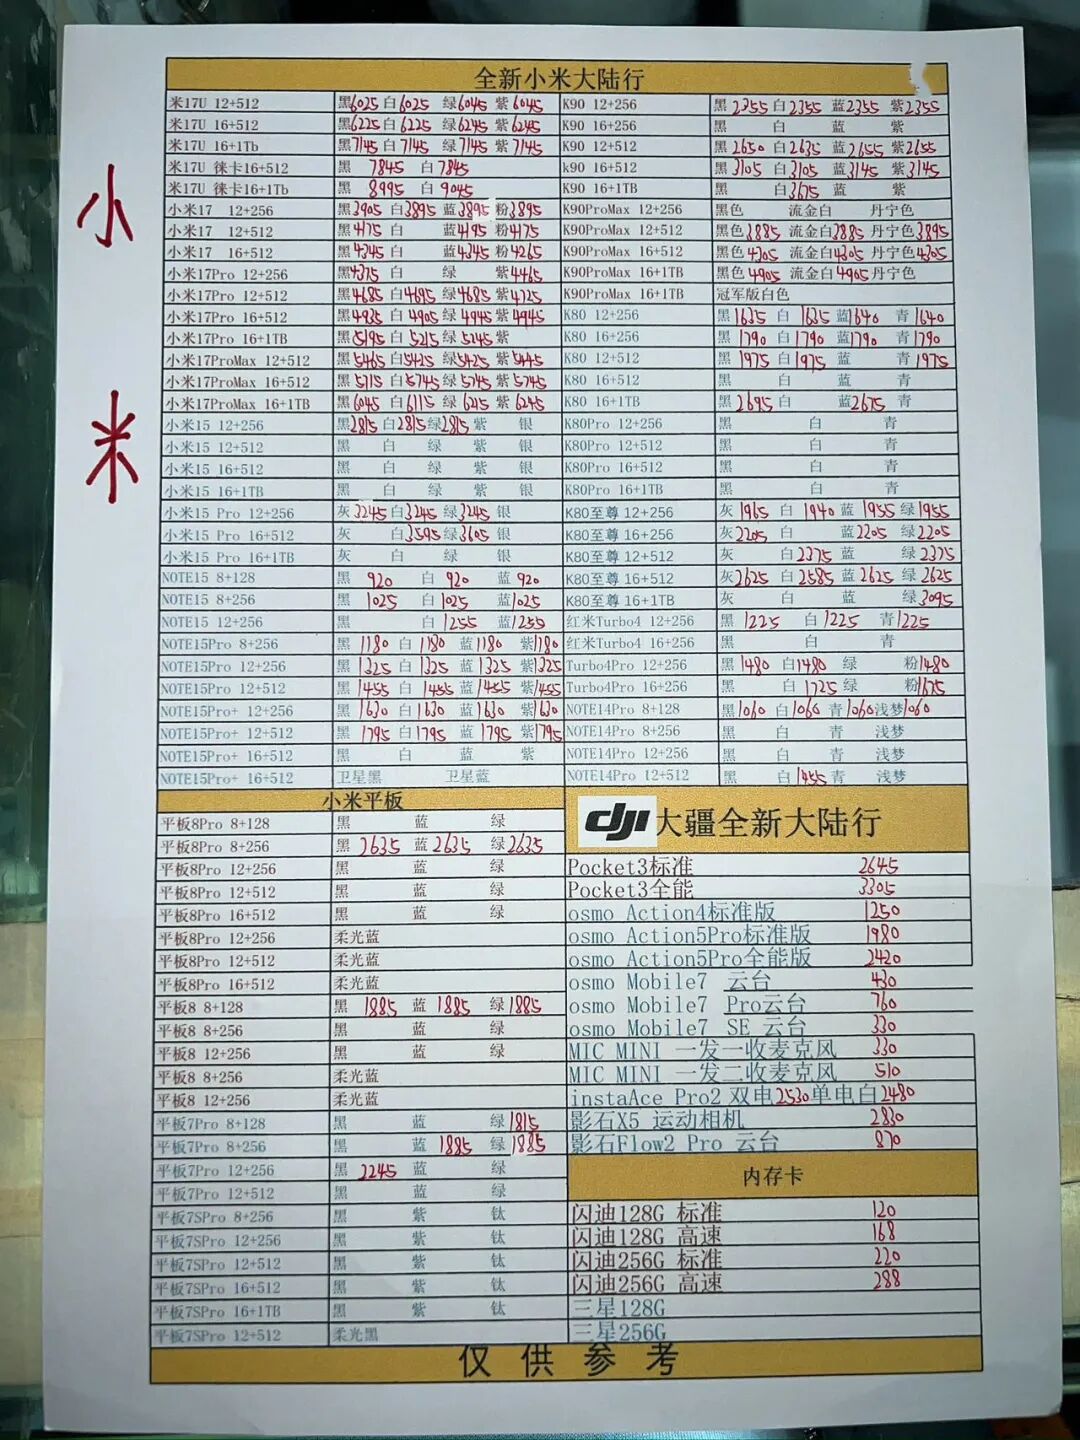 小
米
全新小米大陆行
米17U 12+512 黑6025 白6025 绿6045 紫6045
米17U 16+512 黑6225 白6225 绿6245 紫6245
米17U 16+1Tb 黑7145 白7145 绿7145 紫7145
米17U 徕卡16+512 黑 7845 白7845
米17U 徕卡16+1Tb 黑 8995 白9045
小米17 12+256 黑3905 白3895 蓝3895 粉3895
小米17 12+512 黑4175 白 蓝4195 粉4175
小米17 16+512 黑4345 白 蓝4345 粉4265
小米17Pro 12+256 黑4375 白 绿 紫4465
小米17Pro 12+512 黑4685 白4695 绿4685 紫4725
小米17Pro 16+512 黑4935 白4905 绿4945 紫4945
小米17Pro 16+1TB 黑5195 白5215 绿5245 紫
小米17ProMax 12+512 黑5465 白5425 绿5425 紫5445
小米17ProMax 16+512 黑5715 白5745 绿5745 紫5745
小米17ProMax 16+1TB 黑6045 白6115 绿6215 紫6245
小米15 12+256 黑2815 白2815 绿2815 紫 银
小米15 12+512 黑 白 绿 紫 银
小米15 16+512 黑 白 绿 紫 银
小米15 16+1TB 黑 白 绿 紫 银
小米15 Pro 12+256 灰3245 白3245 绿3245 银
小米15 Pro 16+512 灰 白3595 绿3605 银
小米15 Pro 16+1TB 灰 白 绿 银
NOTE15 8+128 黑 920 白 920 蓝920
NOTE15 8+256 黑 1025 白1025 蓝1025
NOTE15 12+256 黑 白1255 蓝1255
NOTE15Pro 8+256 黑1180 白1180 蓝1180 紫1180
NOTE15Pro 12+256 黑1325 白1325 蓝1325 紫1325
NOTE15Pro 12+512 黑1455 白1455 蓝1455 紫1455
NOTE15Pro+ 12+256 黑1630 白1630 蓝1630 紫1630
NOTE15Pro+ 12+512 黑1795 白1795 蓝1795 紫1795
NOTE15Pro+ 16+512 黑 白 蓝 紫
NOTE15Pro+ 16+512 卫星黑 卫星蓝
K90 12+256 黑2355 白2355 蓝2355 紫2355
K90 16+256 黑 白 蓝 紫
K90 12+512 黑2650 白2635 蓝2655 紫2655
k90 16+512 黑3105 白3105 蓝3145 紫3145
K90 16+1TB 黑 白3675 蓝 紫
K90ProMax 12+256 黑色 流金白 丹宁色
K90ProMax 12+512 黑色3885 流金白3885 丹宁色3895
K90ProMax 16+512 黑色4305 流金白4305 丹宁色4305
K90ProMax 16+1TB 黑色4905 流金白4905 丹宁色
K90ProMax 16+1TB 冠军版白色
K80 12+256 黑1635 白1635 蓝1640 青1640
K80 16+256 黑1790 白1790 蓝1790 青1790
K80 12+512 黑1975 白1975 蓝 青1975
K80 16+512 黑 白 蓝 青
K80 16+1TB 黑2695 白 蓝2675 青
K80Pro 12+256 黑 白 青
K80Pro 12+512 黑 白 青
K80Pro 16+512 黑 白 青
K80Pro 16+1TB 黑 白 青
K80至尊 12+256 灰1965 白1940 蓝1955 绿1955
K80至尊 16+256 灰2205 白 蓝2205 绿2205
K80至尊 12+512 灰 白2375 蓝 绿2375
K80至尊 16+512 灰2625 白2585 蓝2625 绿2625
K80至尊 16+1TB 灰 白 蓝 绿3095
红米Turbo4 12+256 黑1225 白1225 青1225
红米Turbo4 16+256 黑 白 青
Turbo4Pro 12+256 黑1480 白1480 绿 粉1480
Turbo4Pro 16+256 黑 白1725 绿 粉1675
NOTE14Pro 8+128 黑1060 白1060 青1060 浅梦1060
NOTE14Pro 8+256 黑 白 青 浅梦
NOTE14Pro 12+256 黑 白 青 浅梦
NOTE14Pro 12+512 黑 白1455 青 浅梦
小米平板
平板8Pro 8+128 黑 蓝 绿
平板8Pro 8+256 黑 2635 蓝2635 绿2635
平板8Pro 12+256 黑 蓝 绿
平板8Pro 12+512 黑 蓝 绿
平板8Pro 16+512 黑 蓝 绿
平板8Pro 12+256 柔光蓝
平板8Pro 12+512 柔光蓝
平板8Pro 16+512 柔光蓝
平板8 8+128 黑 1885 蓝 1885 绿1885
平板8 8+256 黑 蓝 绿
平板8 12+256 黑 蓝 绿
平板8 8+256 柔光蓝
平板8 12+256 柔光蓝
平板7Pro 8+128 黑 蓝 绿1815
平板7Pro 8+256 黑 蓝 1885 绿1885
平板7Pro 12+256 黑 2245 蓝 绿
平板7Pro 12+512 黑 蓝 绿
平板7SPro 8+256 黑 紫 钛
平板7SPro 12+256 黑 紫 钛
平板7SPro 12+512 黑 紫 钛
平板7SPro 16+512 黑 紫 钛
平板7SPro 16+1TB 黑 紫 钛
平板7SPro 12+512 柔光黑
dji 大疆全新大陆行
Pocket3标准 2645
Pocket3全能 3305
osmo Action4标准版 1250
osmo Action5Pro标准版 1980
osmo Action5Pro全能版 2420
osmo Mobile7 云台 430
osmo Mobile7 Pro云台 760
osmo Mobile7 SE 云台 330
MIC MINI 一发一收麦克风 330
MIC MINI 一发二收麦克风 510
instaAce Pro2 双电2530单电白2480
影石X5 运动相机 2830
影石Flow2 Pro 云台 870
内存卡
闪迪128G 标准 120
闪迪128G 高速 168
闪迪256G 标准 220
闪迪256G 高速 288
三星128G
三星256G
仅供参考